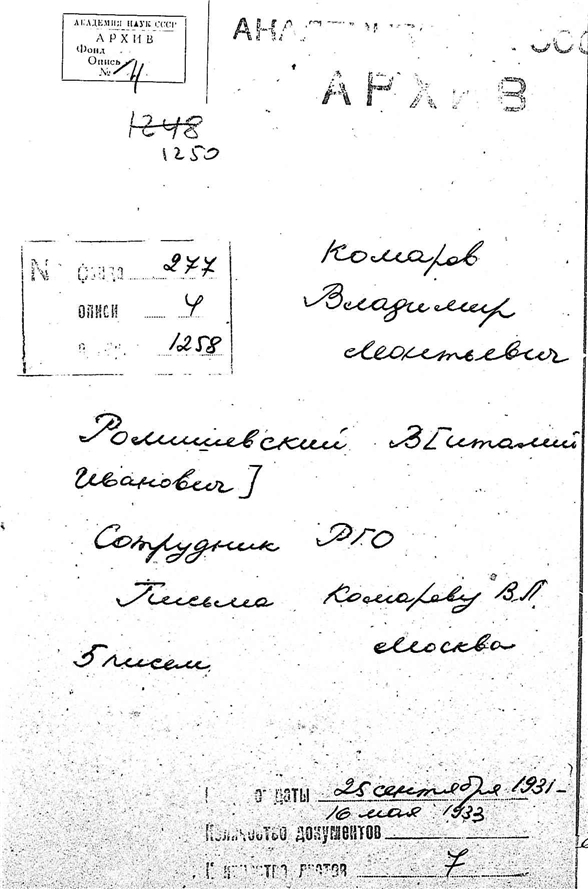 АКАДЕМИЯ НАУК СССР
АРХИВ
Фонд
Опись
№ 14
АРХИВ
1248
1250
№ фонда 277
описи 4
1258
Комаров
Владимир
Леонтьевич
Ромишевский В[италий
Иванович]
Сотрудник РГО
Письма Комарову В.Л.
Москва
5 писем
даты 25 сентября 1931-
16 мая 1933
Количество документов
Количество листов 7